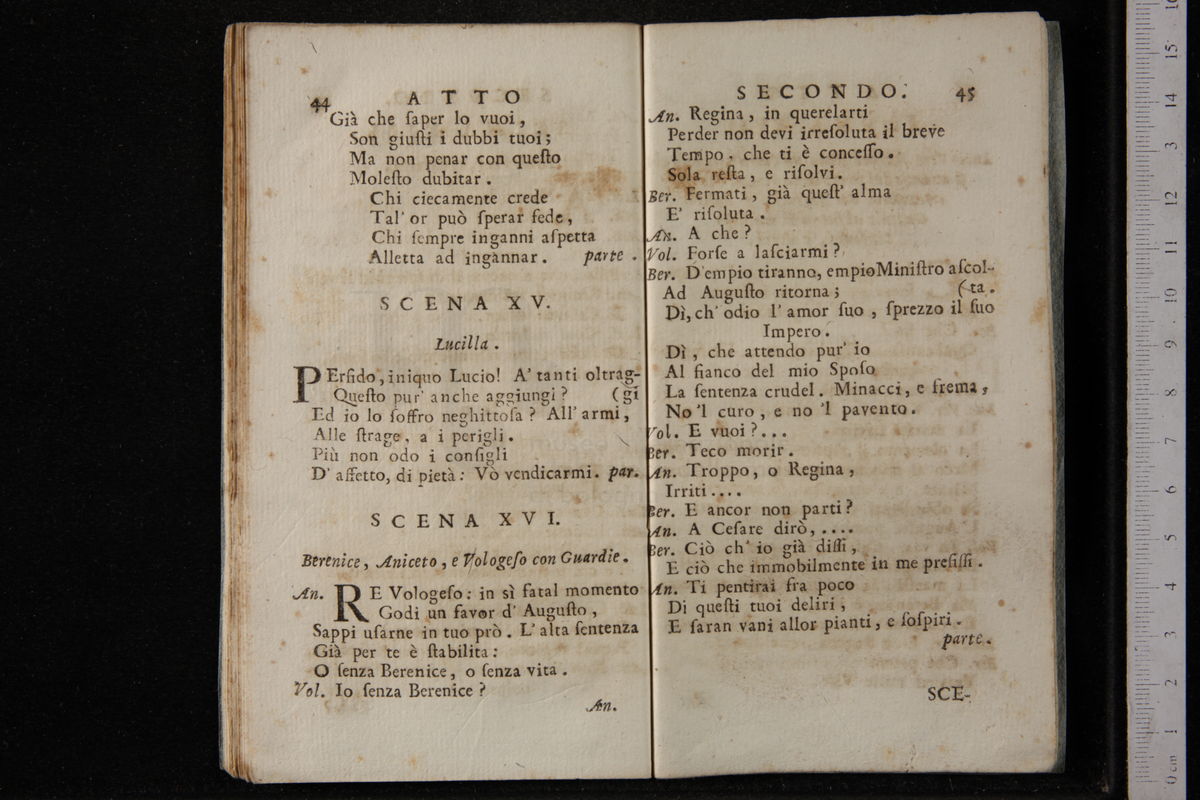 44 ATTO
Già che ſaper lo vuoi,
Son giuſti i dubbi tuoi;
Ma non penar con queſto
Moleſto dubitar.
Chi ciecamente crede
Tal' or può ſperar fede,
Chi ſempre inganni aſpetta
Alletta ad ingannar. parte.
SCENA XV.
Lucilla.
PErſido, iniquo Lucio! A' tanti oltrag-
Queſto pur' anche aggiungi? (gi
Ed io lo ſoffro neghittoſa? All' armi,
Alle ſtrage, a i perigli.
Più non odo i conſigli
D' affetto, di pietà: Vò vendicarmi. par.
SCENA XVI.
Berenice, Aniceto, e Vologeſo con Guardie.
An. RE Vologeſo: in sì fatal momento
Godi un favor d' Auguſto,
Sappi uſarne in tuo prò. L' alta ſentenza
Già per te è ſtabilita:
O ſenza Berenice, o ſenza vita.
Vol. Io ſenza Berenice?
An.
SECONDO. 45
An. Regina, in querelarti
Perder non devi irreſoluta il breve
Tempo, che ti è conceſſo.
Sola reſta, e riſolvi.
Ber. Fermati, già queſt' alma
E' riſoluta.
An. A che?
Vol. Forſe a laſciarmi?
Ber. D'empio tiranno, empio Miniſtro aſcol-
Ad Auguſto ritorna; (ta.
Dì, ch' odio l' amor ſuo, ſprezzo il ſuo
Impero.
Dì, che attendo pur' io
Al fianco del mio Spoſo
La ſentenza crudel. Minacci, e frema,
No 'l curo, e no 'l pavento.
Vol. E vuoi?...
Ber. Teco morir.
An. Troppo, o Regina,
Irriti....
Ber. E ancor non parti?
An. A Ceſare dirò,....
Ber. Ciò ch' io già diſſi,
E ciò che immobilmente in me prefiſſi.
An. Ti pentirai fra poco
Di queſti tuoi deliri,
E ſaran vani allor pianti, e ſoſpiri.
parte.
SCE-